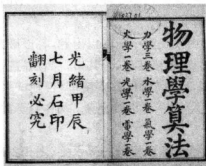 物理學算法
力學三卷 水學一卷 氣學一卷
火學一卷 光學一卷 電學一卷
光緒甲辰
七月石印
翻刻必究